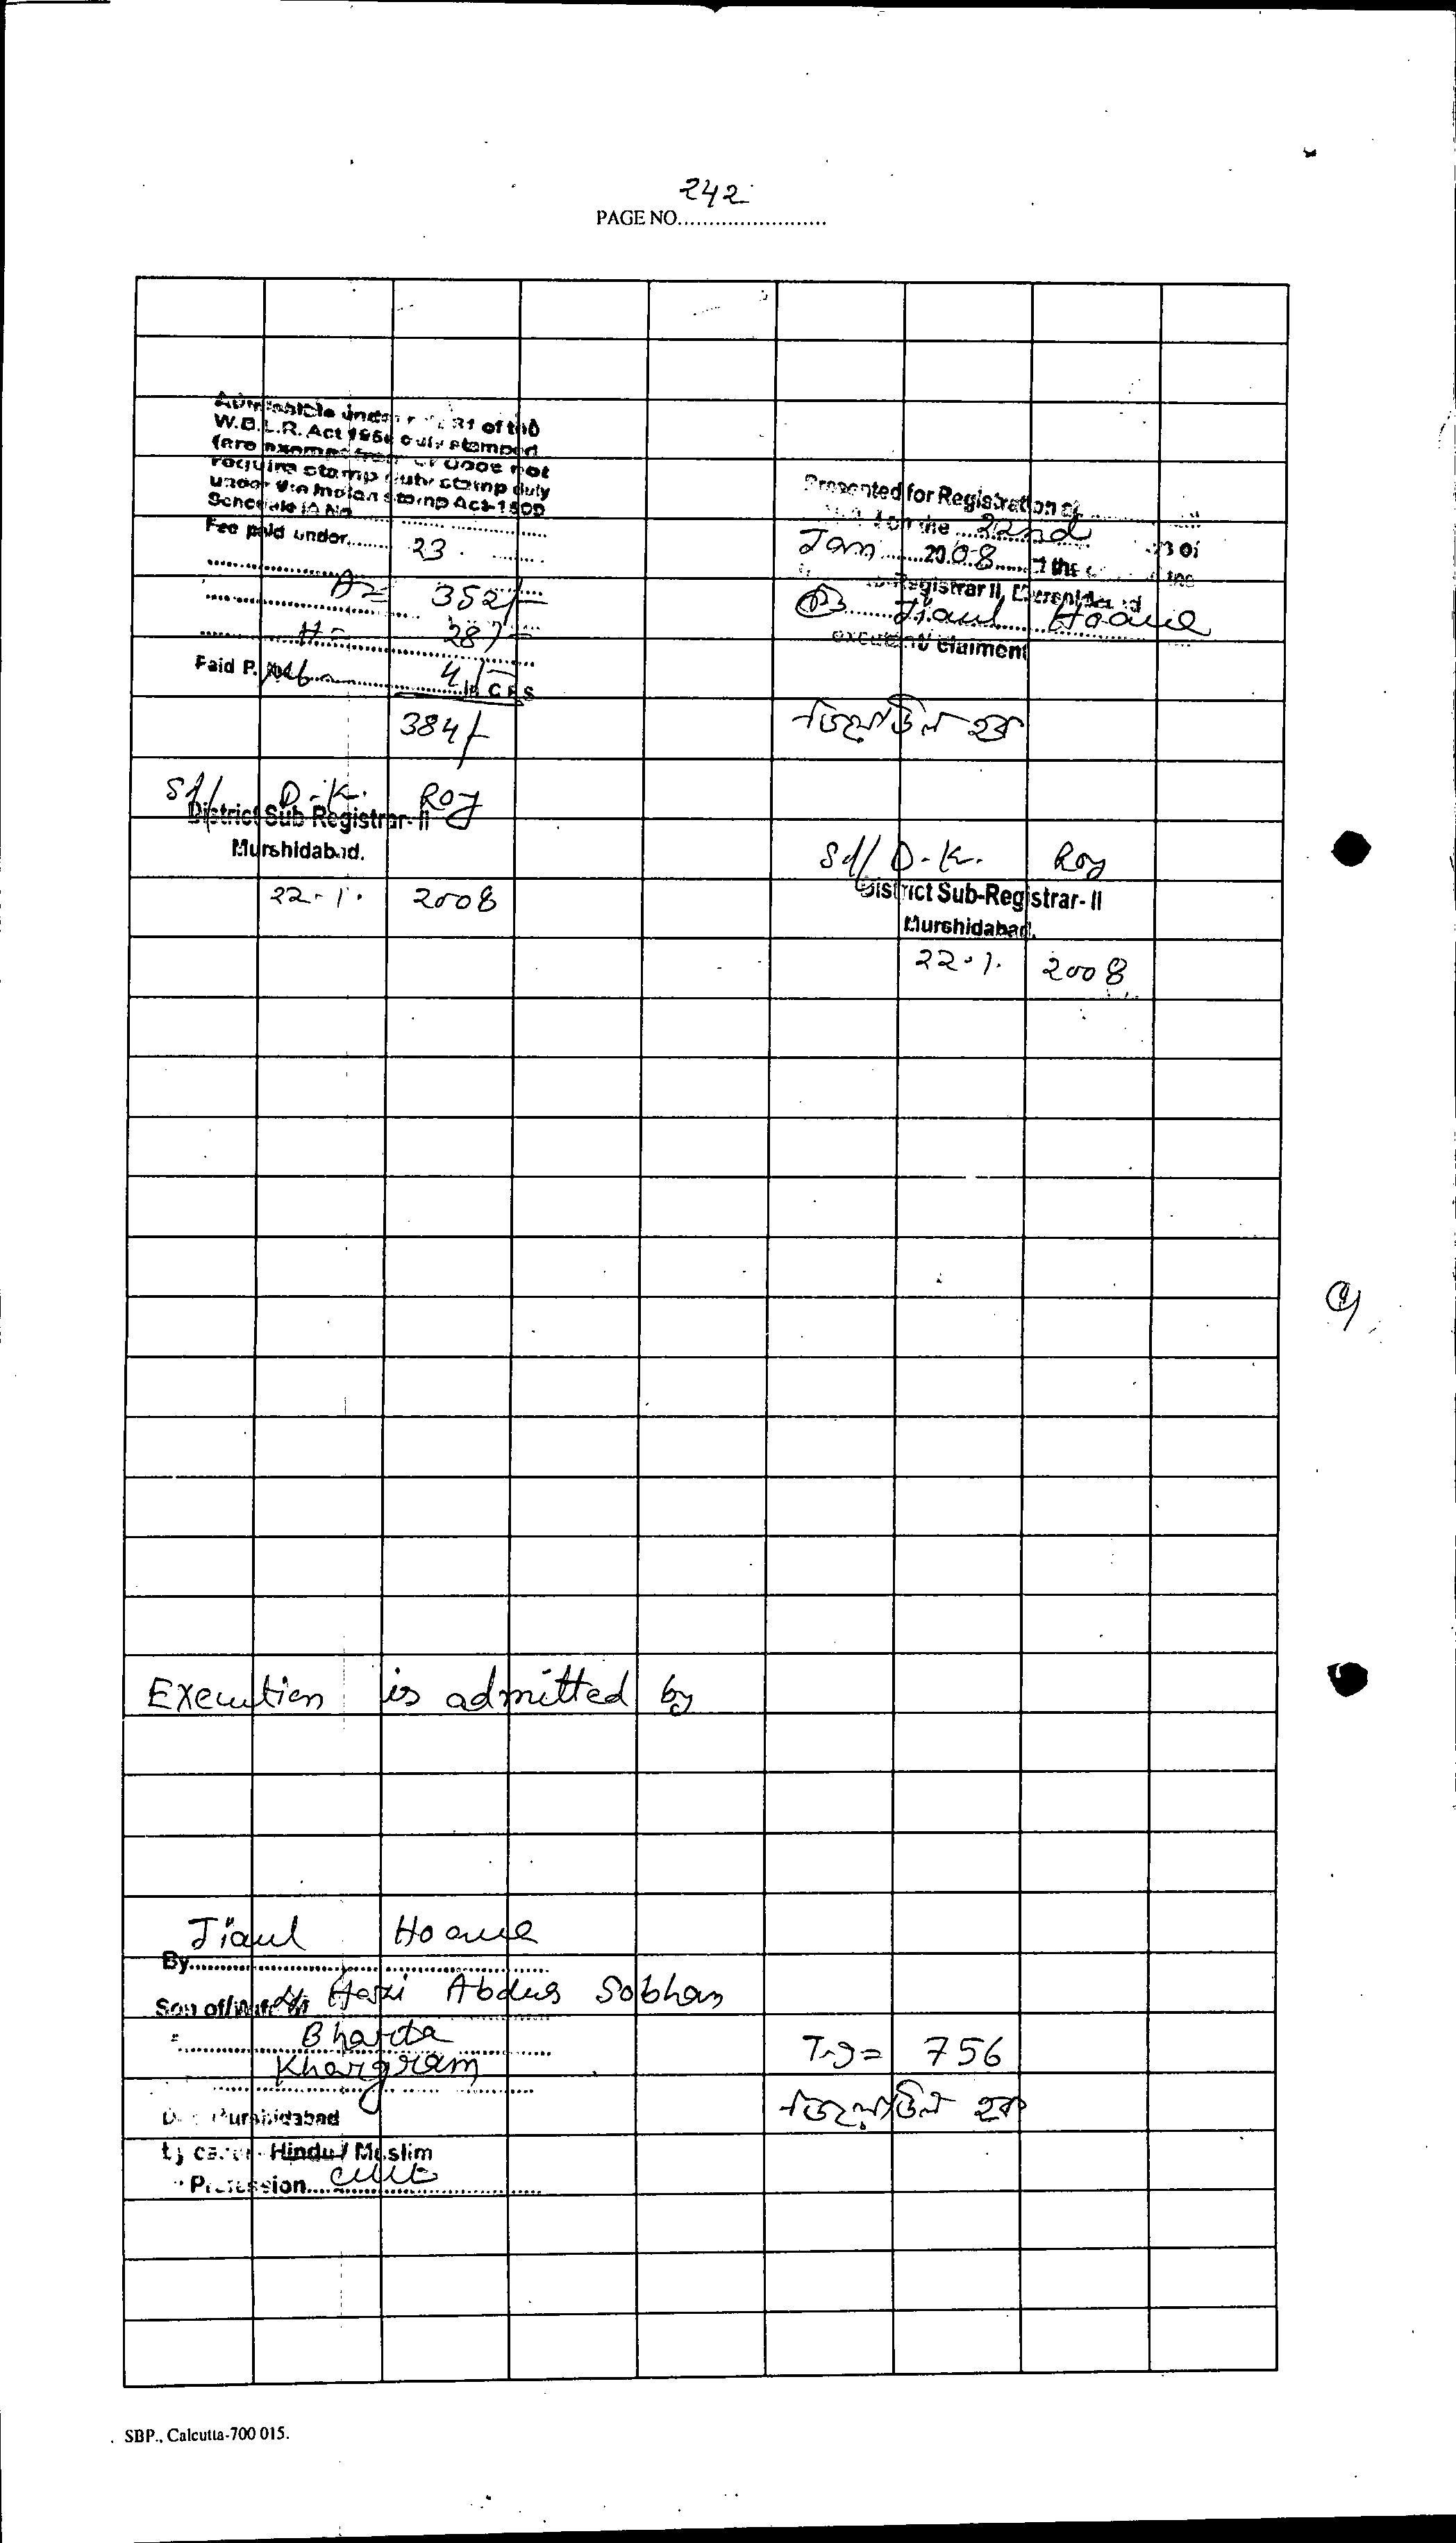 242
PAGE NO.........................
Admissible under rule 21 of the
W.B.L.R. Act 1956 duly stamped
require stamp duty stamp duty
under the Indian stamp Act-1899
Schedule IA No
Fee paid under........ 23
A= 352/-
H= 28/-
Paid P. 4/-
384/-
Sd/ D.K. Roy
District Sub-Registrar-II
Murshidabad.
22.1.2008
Presented for Registration at
on the 22nd
Jan 2008 at the
Registrar II, Murshidabad
Jiaul Hoque
executant/claiment
জিয়াউল হক
Sd/ D.K. Roy
District Sub-Registrar-II
Murshidabad.
22.1.2008
Execution is admitted by
Jiaul Hoque
By
Son of/Wife of Hazi Abdus Sobhan
Bharta
Khargram
Murshidabad
by caste - Hindu / Muslim
Profession cult
756
জিয়াউল হক
SBP., Calcutta-700 015.